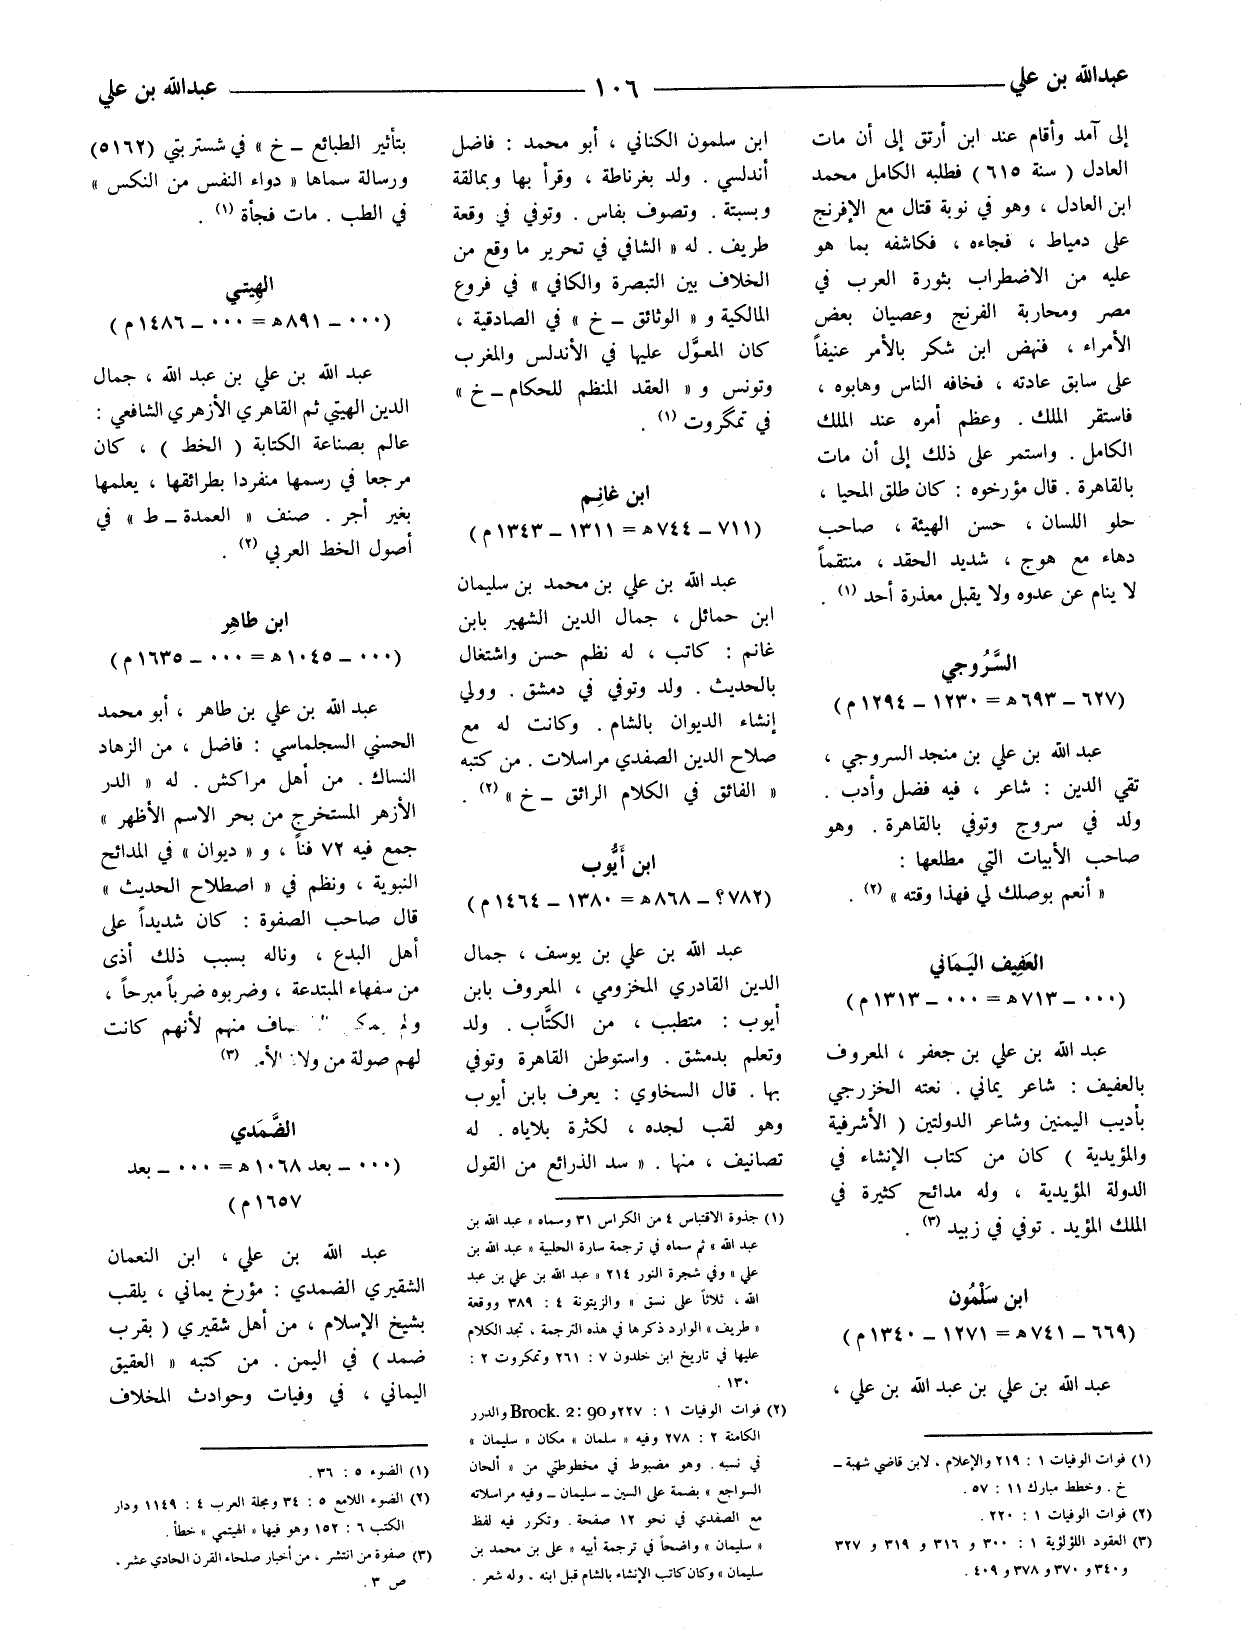 عبدالله بن علي ١٠٦ عبدالله بن علي
إلى آمد وأقام عند ابن أرتق إلى أن مات
العادل ( سنة ٦١٥ ) فطلبه الكامل محمد
ابن العادل ، وهو في نوبة قتال مع الإفرنج
على دمياط ، فجاءه ، فكاشفه بما هو
عليه من الاضطراب بثورة العرب في
مصر ومحاربة الفرنج وعصيان بعض
الأمراء ، فنهض ابن شكر بالأمر عنيفاً
على سابق عادته ، فخافه الناس وهابوه ،
فاستقر الملك . وعظم أمره عند الملك
الكامل . واستمر على ذلك إلى أن مات
بالقاهرة . قال مؤرخوه : كان طلق المحيا ،
حلو اللسان ، حسن الهيئة ، صاحب
دهاء مع هوج ، شديد الحقد ، منتقماً
لا ينام عن عدوه ولا يقبل معذرة أحد (١) .
السَّرُوجي
(٦٢٧ ــ ٦٩٣ هـ = ١٢٣٠ ــ ١٢٩٤ م)
عبد الله بن علي بن منجد السروجي ،
تقي الدين : شاعر ، فيه فضل وأدب .
ولد في سروج وتوفي بالقاهرة . وهو
صاحب الأبيات التي مطلعها :
« أنعم بوصلك لي فهذا وقته » (٢) .
العَفِيف اليَمَاني
(٠٠٠ ــ ٧١٣ هـ = ٠٠٠ ــ ١٣١٣ م)
عبد الله بن علي بن جعفر ، المعروف
بالعفيف : شاعر يماني . نعته الخزرجي
بأديب اليمنين وشاعر الدولتين ( الأشرفية
والمؤيدية ) كان من كتاب الإنشاء في
الدولة المؤيدية ، وله مدائح كثيرة في
الملك المؤيد . توفي في زبيد (٣) .
ابن سَلْمُون
(٦٦٩ ــ ٧٤١ هـ = ١٢٧١ ــ ١٣٤٠ م)
عبد الله بن علي بن عبد الله بن علي ،
(١) فوات الوفيات ١ : ٢١٩ والإعلام ، لابن قاضي شهبة ــ
خ . وخطط مبارك ١١ : ٥٧ .
(٢) فوات الوفيات ١ : ٢٢٠ .
(٣) العقود اللؤلؤية ١ : ٣٠٠ و ٣١٦ و ٣١٩ و ٣٢٧
و ٣٤٠ و ٣٧٠ و ٣٧٨ و ٤٠٩ .
ابن سلمون الكناني ، أبو محمد : فاضل
أندلسي . ولد بغرناطة ، وقرأ بها وبمالقة
وبسبتة . وتصوف بفاس . وتوفي في وقعة
طريف . له « الشافي في تحرير ما وقع من
الخلاف بين التبصرة والكافي » في فروع
المالكية و « الوثائق ــ خ » في الصادقية ،
كان المعوَّل عليها في الأندلس والمغرب
وتونس و « العقد المنظم للحكام ــ خ »
في تمگروت (١) .
ابن غانِم
(٧١١ ــ ٧٤٤ هـ = ١٣١١ ــ ١٣٤٣ م)
عبد الله بن علي بن محمد بن سليمان
ابن حمائل ، جمال الدين الشهير بابن
غانم : كاتب ، له نظم حسن واشتغال
بالحديث . ولد وتوفي في دمشق . وولي
إنشاء الديوان بالشام . وكانت له مع
صلاح الدين الصفدي مراسلات . من كتبه
« الفائق في الكلام الرائق ــ خ » (٢) .
ابن أَيُّوب
(٧٨٢؟ ــ ٨٦٨ هـ = ١٣٨٠ ــ ١٤٦٤ م)
عبد الله بن علي بن يوسف ، جمال
الدين القادري المخزومي ، المعروف بابن
أيوب : متطبب ، من الكتَّاب . ولد
وتعلم بدمشق . واستوطن القاهرة وتوفي
بها . قال السخاوي : يعرف بابن أيوب
وهو لقب لجده ، لكثرة بلاياه . له
تصانيف ، منها . « سد الذرائع من القول
(١) جذوة الاقتباس ٤ من الكراس ٣١ وسماه « عبد الله بن
عبد الله » ثم سماه في ترجمة سارة الحلبية « عبد الله بن
علي » وفي شجرة النور ٢١٤ « عبد الله بن علي بن عبد
الله ، ثلاثاً على نسق » والزيتونة ٤ : ٣٨٩ ووقعة
« طريف » الوارد ذكرها في هذه الترجمة ، تجد الكلام
عليها في تاريخ ابن خلدون ٧ : ٢٦١ وتمكروت ٢ :
١٣٠ .
(٢) فوات الوفيات ١ : ٢٢٧ و Brock. 2: 90 والدرر
الكامنة ٢ : ٢٧٨ وفيه « سلمان » مكان « سليمان »
في نسبه . وهو مضبوط في مخطوطتي من « ألحان
السواجع » بضمة على السين ــ سليمان ــ وفيه مراسلاته
مع الصفدي في نحو ١٢ صفحة . وتكرر فيه لفظ
« سليمان » واضحاً في ترجمة أبيه « علي بن محمد بن
سليمان » وكان كاتب الإنشاء بالشام قبل ابنه . وله شعر .
بتأثير الطبائع ــ خ » في شستربتي (٥١٦٢)
ورسالة سماها « دواء النفس من النكس »
في الطب . مات فجأة (١) .
الهِيتي
(٠٠٠ ــ ٨٩١ هـ = ٠٠٠ ــ ١٤٨٦ م)
عبد الله بن علي بن عبد الله ، جمال
الدين الهيتي ثم القاهري الأزهري الشافعي :
عالم بصناعة الكتابة ( الخط ) ، كان
مرجعا في رسمها منفردا بطرائقها ، يعلمها
بغير أجر . صنف « العمدة ــ ط » في
أصول الخط العربي (٢) .
ابن طاهِر
(٠٠٠ ــ ١٠٤٥ هـ = ٠٠٠ ــ ١٦٣٥ م)
عبد الله بن علي بن طاهر ، أبو محمد
الحسني السجلماسي : فاضل ، من الزهاد
النساك . من أهل مراكش . له « الدر
الأزهر المستخرج من بحر الاسم الأظهر »
جمع فيه ٧٢ فناً ، و « ديوان » في المدائح
النبوية ، ونظم في « اصطلاح الحديث »
قال صاحب الصفوة : كان شديداً على
أهل البدع ، وناله بسبب ذلك أذى
من سفهاء المبتدعة ، وضربوه ضرباً مبرحاً ،
ولم منهم لأنهم كانت
لهم صولة من (٣)
الضَّمَدي
(٠٠٠ ــ بعد ١٠٦٨ هـ = ٠٠٠ ــ بعد
١٦٥٧ م)
عبد الله بن علي ، ابن النعمان
الشقيري الضمدي : مؤرخ يماني ، يلقب
بشيخ الإسلام ، من أهل شقيري ( بقرب
ضمد ) في اليمن . من كتبه « العقيق
اليماني ، في وفيات وحوادث المخلاف
(١) الضوء ٥ : ٣٦ .
(٢) الضوء اللامع ٥ : ٣٤ ومجلة العرب ٤ : ١١٤٩ ودار
الكتب ٦ : ١٥٢ وهو فيها « الهيتمي » خطأ .
(٣) صفوة من انتشر ، من أخبار صلحاء القرن الحادي عشر .
ص ٣ .